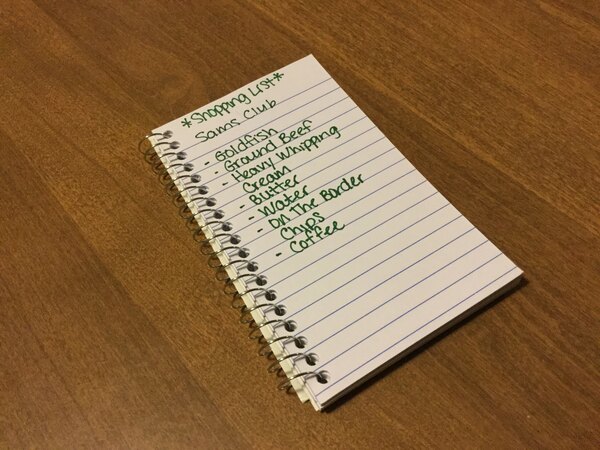 *Shopping List*
Sams Club
- Goldfish
- Ground Beef
- Heavy Whipping
Cream
- Butter
- Water
- On The Border
Chips
- Coffee